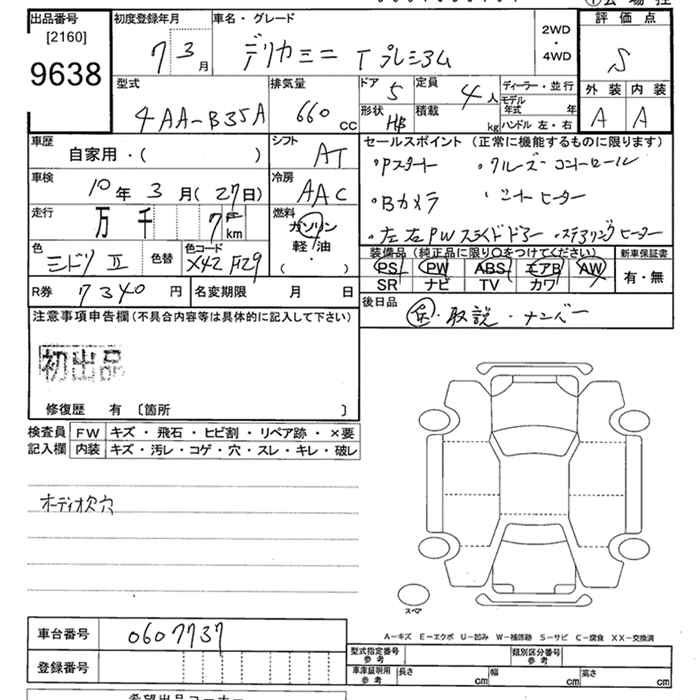 出品番号 初度登録年月 車名・グレード 評価点
[2160] 9638 7 3月 デリカミニ Tプレミアム 2WD・4WD S
型式 排気量 ドア 5 定員 4人 ディーラー・並行 外装 内装
4AA-B35A 660cc 形状 HB 積載 kg モデル年式 年 ハンドル 左・右 A A
車歴 自家用・( ) シフト AT セールスポイント (正常に機能するものに限ります)
車検 10年3月(27日) 冷房 AAC ・Pスタート ・クルーズコントロール
・Bカメラ ・シートヒーター
走行 万 千 7km 燃料 ガソリン 軽油 ・ ( ) ・左右PWスライドドアー ・ステアリングヒーター
色 ミドリⅡ 色替 色コード X42 F29 装備品 (純正品に限り○をつけてください) 新車保証書
PS PW ABS エアB AW 有・無
SR ナビ TV カワ
R券 7340円 名変期限 月 日 後日品
㋭・取説・ナンバー
注意事項申告欄(不具合内容等は具体的に記入して下さい)
初出品
修復歴 有 〔箇所 〕
検査員 FW キズ・飛石・ヒビ割・リペア跡・×要
記入欄 内装 キズ・汚レ・コゲ・穴・スレ・キレ・破レ
オーディオ欠穴
スペア
A-キズ E-エクボ U-凹み W-補修跡 S-サビ C-腐食 XX-交換済
車台番号 0607737
型式指定番号 参考 類別区分番号 参考
登録番号 車庫証明用 参考 長さ cm 幅 cm 高さ cm
希望出品コーナー